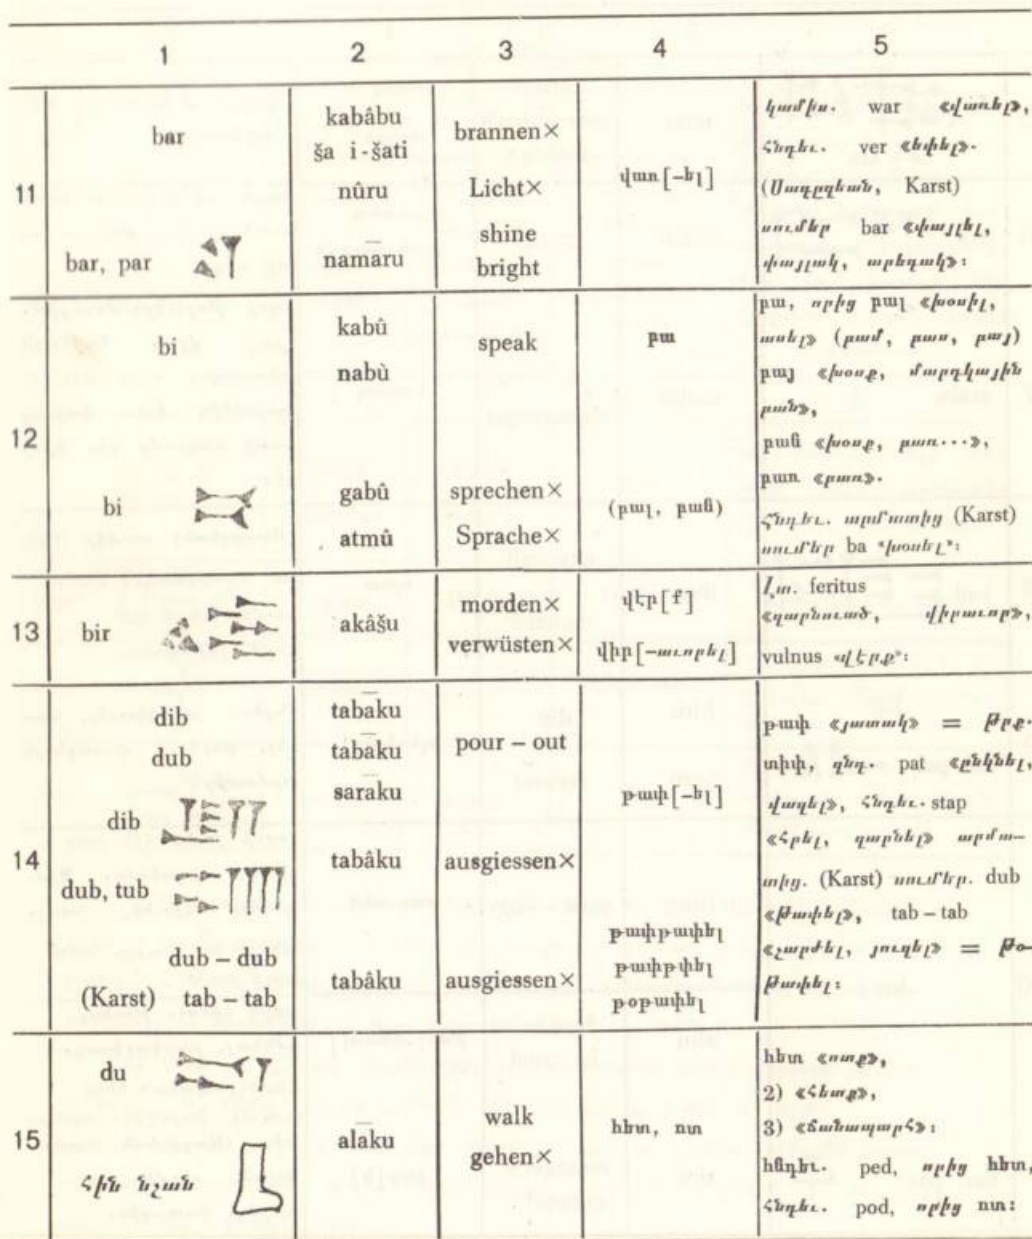 1 2 3 4 5
11
bar
bar, par
kabâbu
ša i-šati
nûru
namāru
brannen×
Licht×
shine
bright
վառ[-ել]
կամիս. war «վառել»,
Հնդեւ. ver «եփել».
(Սագըզեան, Karst)
սումեր bar «փայլել,
փայլակ, արեգակ»։
12
bi
bi
kabû
nabù
gabû
atmû
speak
sprechen×
Sprache×
բա
(բալ, բան)
բա, որից բալ «խօսիլ,
ասել» (բամ, բաս, բայ)
բայ «խօսք, մարդկային
բան»,
բան «խօսք, բառ...»,
բառ «բառ».
Հնդեւ. արմատից (Karst)
սումեր ba "խօսել"։
13
bir
akâšu
morden×
verwüsten×
վէր[ք]
վիր[-աւորել]
Լտ. feritus
«զարնուած, վիրաւոր»,
vulnus «վէրք»։
14
dib
dub
dib
dub, tub
dub – dub
(Karst) tab – tab
tabāku
tabāku
sarāku
tabâku
tabâku
pour – out
ausgiessen×
ausgiessen×
թափ[-ել]
թափթափել
թափթփել
թօթափել
թափ «յատակ» = թրք.
տիփ, գնդ. pat «ընկնել,
վազել», Հնդեւ. stap
«Հրել, զարնել» արմա-
տից. (Karst) սումեր. dub
«թափել», tab – tab
«շարժել, յուզել» = թօ-
թափել։
15
du
Հին նշան
alāku
walk
gehen×
հետ, ոտ
հետ «ոտք»,
2) «Հետք»,
3) «ճանապարհ»։
հնդեւ. ped, որից հետ,
Հնդեւ. pod, որից ոտ։